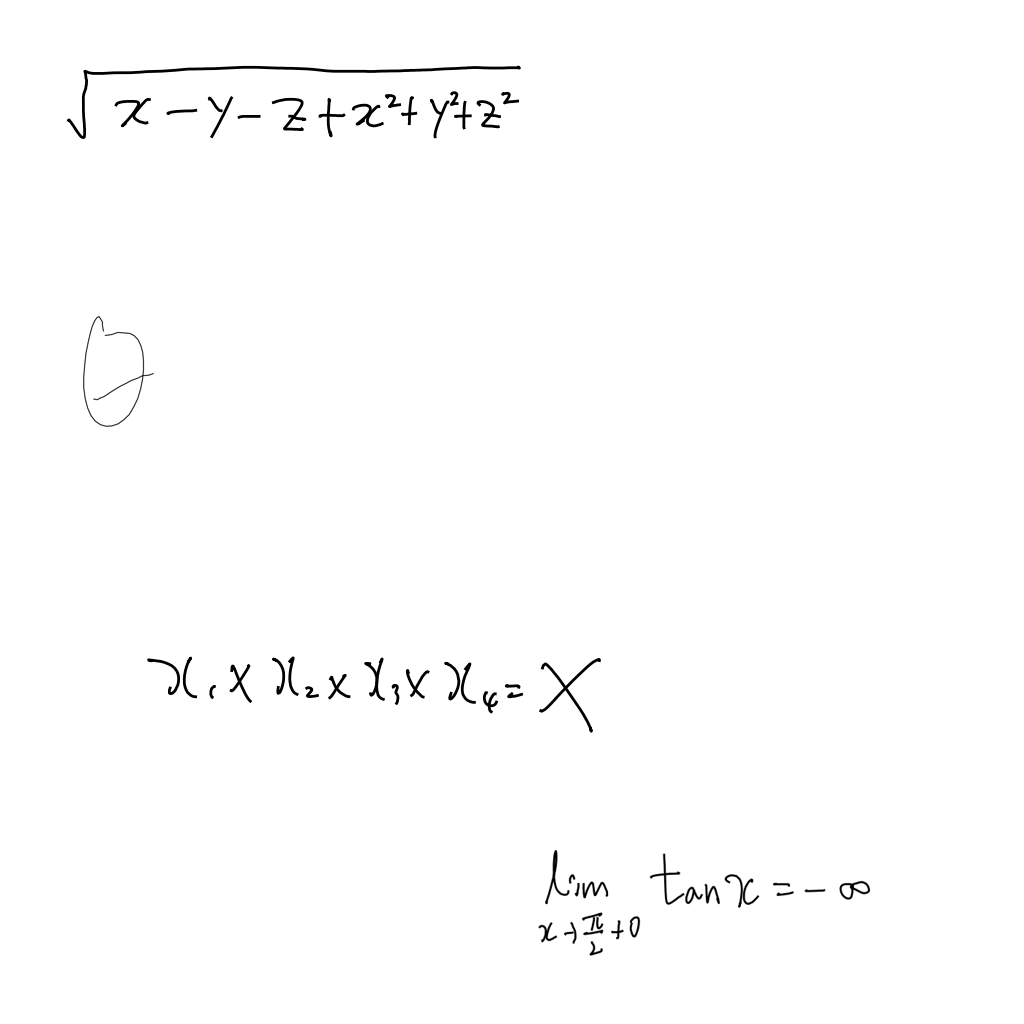 √(x-y-z+x²+y²+z²)
θ
x₁×x₂×x₃×x₄=X
lim_{x→π/2+0} tan x = -∞